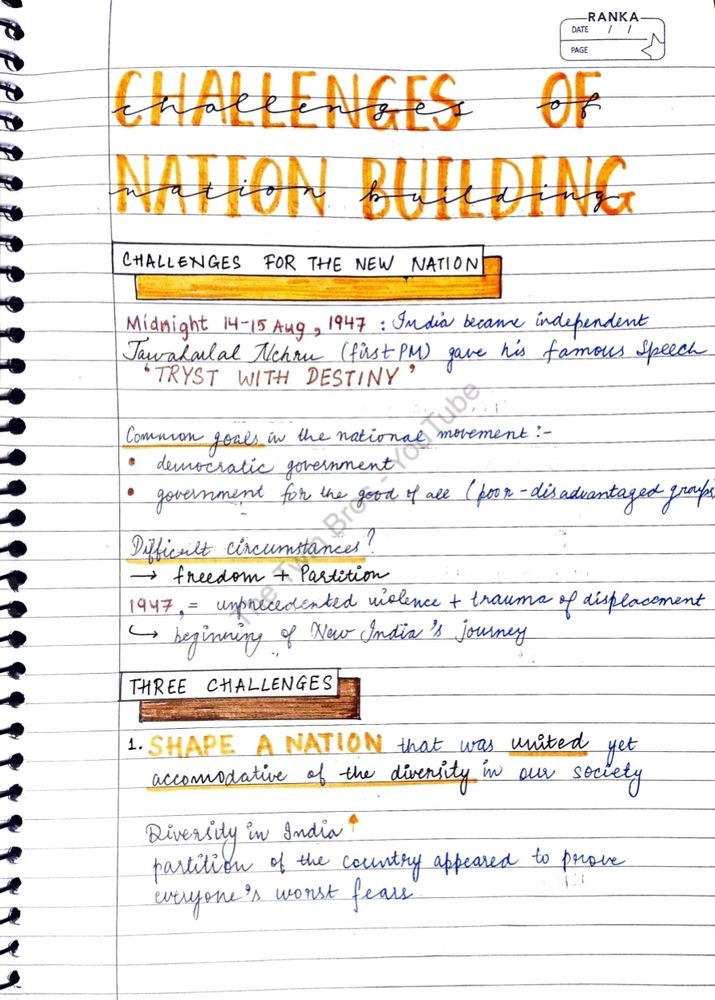 RANKA
DATE / /
PAGE
CHALLENGES OF
challenges of
NATION BUILDING
nation building
CHALLENGES FOR THE NEW NATION
Midnight 14-15 Aug, 1947 : India became independent
Jawaharlal Nehru (first PM) gave his famous Speech
'TRYST WITH DESTINY'
Common goals in the national movement :-
• democratic government
• government for the good of all (poor-disadvantaged groups
Difficult circumstances?
→ freedom + Partition
1947, = unprecedented violence + trauma of displacement
↪ beginning of New India's journey
THREE CHALLENGES
1. SHAPE A NATION that was united yet
accomodative of the diversity in our society
Diversity in India ↑
partition of the country appeared to prove
everyone's worst fears
The Twin Bros - YouTube